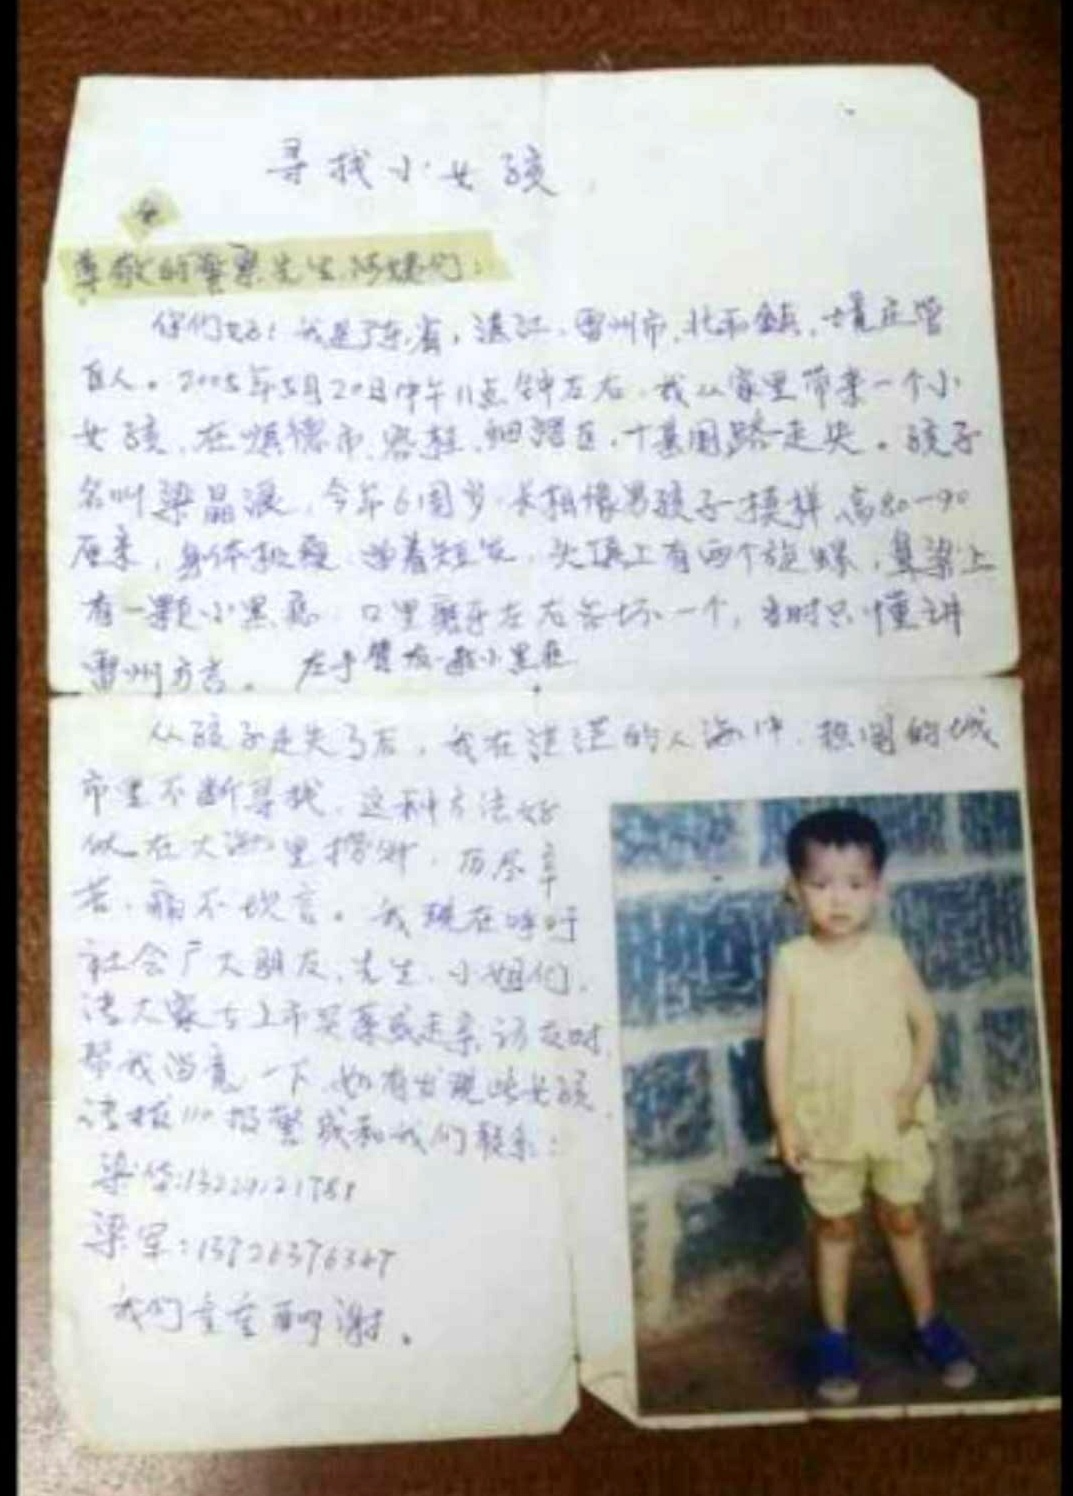 寻找小女孩
尊敬的警察先生 们：
你们好！我是广东省，湛江，雷州市，北和镇，
人。2005年5月20日中午11点钟左右，我从家里带来一个小
女孩，在顺德市，容桂，细滘区，路走失。孩子
名叫梁晶，今年6周岁，长相像男孩子模样，高80—90
厘米，身体，短发，头顶上有两个旋螺，鼻梁上
有一颗小黑痣，口里左右各坏一个，当时只懂讲
雷州方言。左手臂有一颗小黑痣
从孩子走失了后，我在茫茫的人海中，热闹的城
市里不断寻找，这种方法好
似在大海里捞针，历尽辛
苦，痛不堪言。我现在呼吁
社会广大朋友，先生，小姐们，
请大家在上市买菜或走亲访友时，
帮我留意一下，如有发现此女孩，
请报110报警或和我们联系：
梁
梁军：
我们重重酬谢。